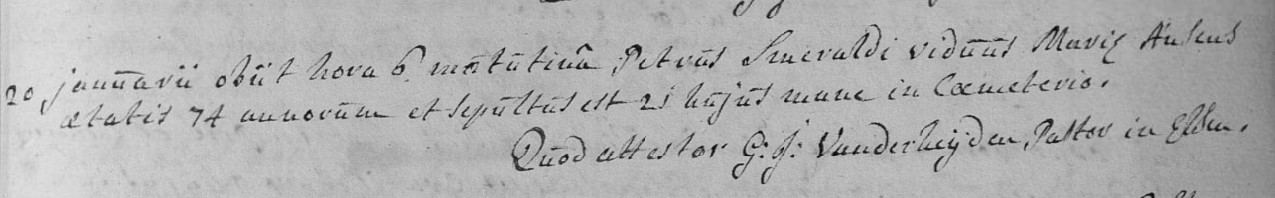 20 januarii obiit hora 6 matutina Petrus Smeraldi viduus Mariæ Ausens
ætatis 74 annorum et sepultus est 21 hujus mane in Cœmeterio.
Quod attestor G: J: Vanderheÿden, Pastor in Elsen.